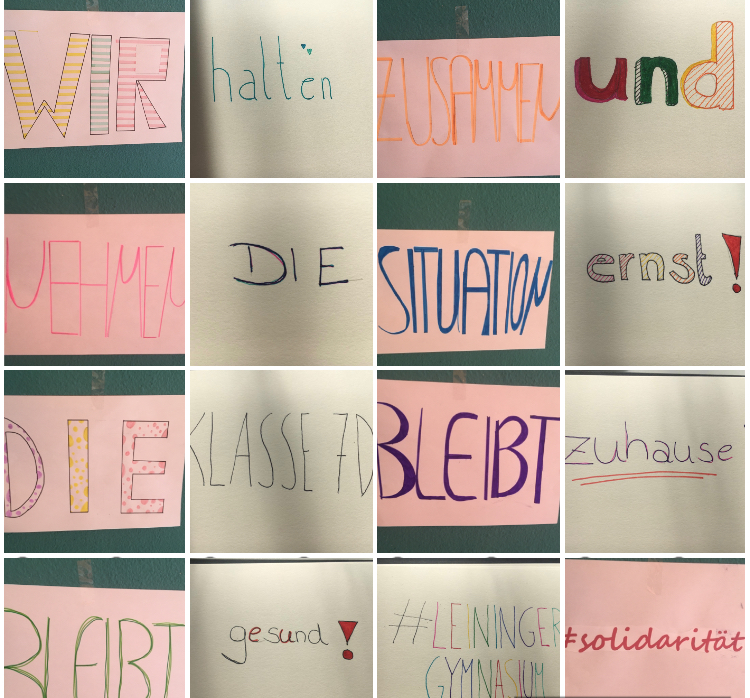 WIR halten ZUSAMMEN und
NEHMEN DIE SITUATION ernst!
DIE KLASSE 7D BLEIBT zuhause
BLEIBT gesund! #LEININGER
GYMNASIUM #solidarität